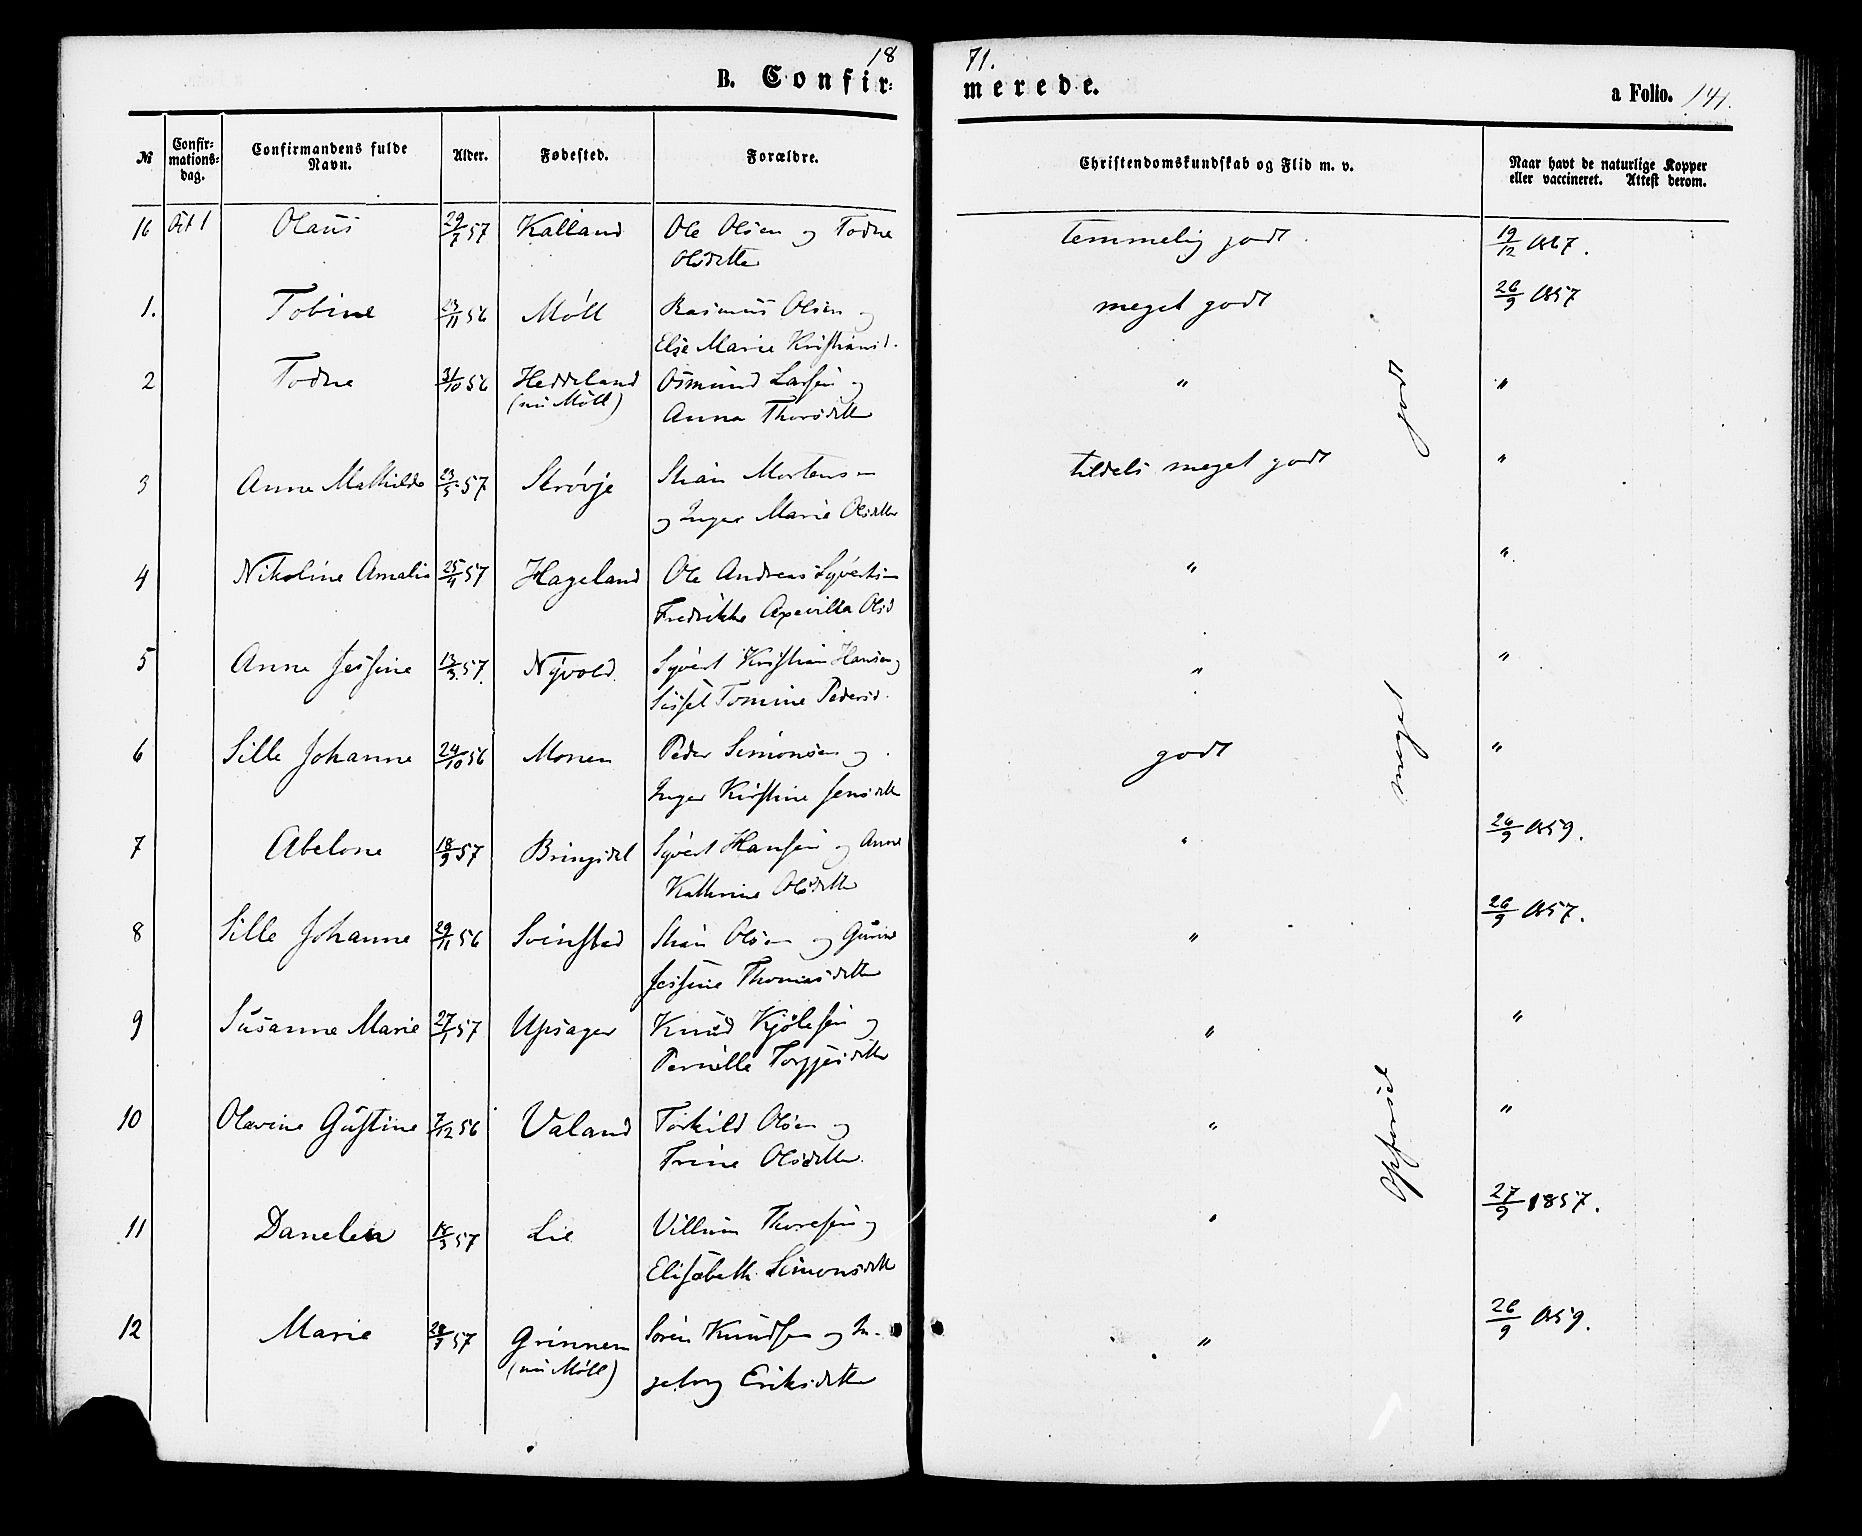 18 71.
B. Confir= merede. a Folio. 141.
№ Confir=mations=dag. Confirmandens fulde Navn. Alder. Fødested. Forældre. Christendomskundskab og Flid m. v. Naar havt de naturlige Kopper eller vaccineret. Attest derom.
16 Oct 1 Olaus 29/7 57 Kalland Ole Olsen og Todne temmelig godt 19/12 1867.
Olsdatter
1. Tobine 23/11 56 Møll Rasmus Olsen og meget godt 26/9 1857
Else Marie Kristiansd.
2 Todne 31/10 56 Heddeland Osmund Larsen og " "
(nu Møll) Anna Thorsdatter
3 Anne Mathilde 23/5 57 Strøvje Stian Mortensen tildels meget godt "
og Inger Marie Olsdatter
4 Nikoline Amalie 25/4 57 Hageland Ole Andreas Syvertsen " "
Fredrikke Axevilla Olsd
5 Anne Jessine 13/3 57. Nyvold. Syvert Kristian Hansen og " "
Sissel Tomine Pedersd.
6 Sille Johanne 24/10 56 Monen Peder Simonsen og godt "
Inger Kirstine Jensdatter
7 Abelone 18/9 57 Bringsdal Syvert Hansen og Anne " 26/9 1859.
Kathrine Olsdatter
8 Sille Johanne 29/11 56 Svinstad Stian Olsen og Gurine " 26/9 1857.
Jessine Thomasdatter
9 Susanne Marie 27/1 57 Upsager Knud Kjølesen og " "
Pernille Torgjusdatter
10 Olavine Gustine 7/12 56 Valand Torkild Olsen og " "
Trine Olsdatter.
11 Danelen 18/3 57 Lie Villum Thoresen og " 27/9 1857.
Elisabeth Simonsdatter
12 Marie 28/7 57 Grinnen Søren Knudsen og In- " 26/9 1859.
(nu Møll) geborg Eriksdatter
Opførsel meget godt